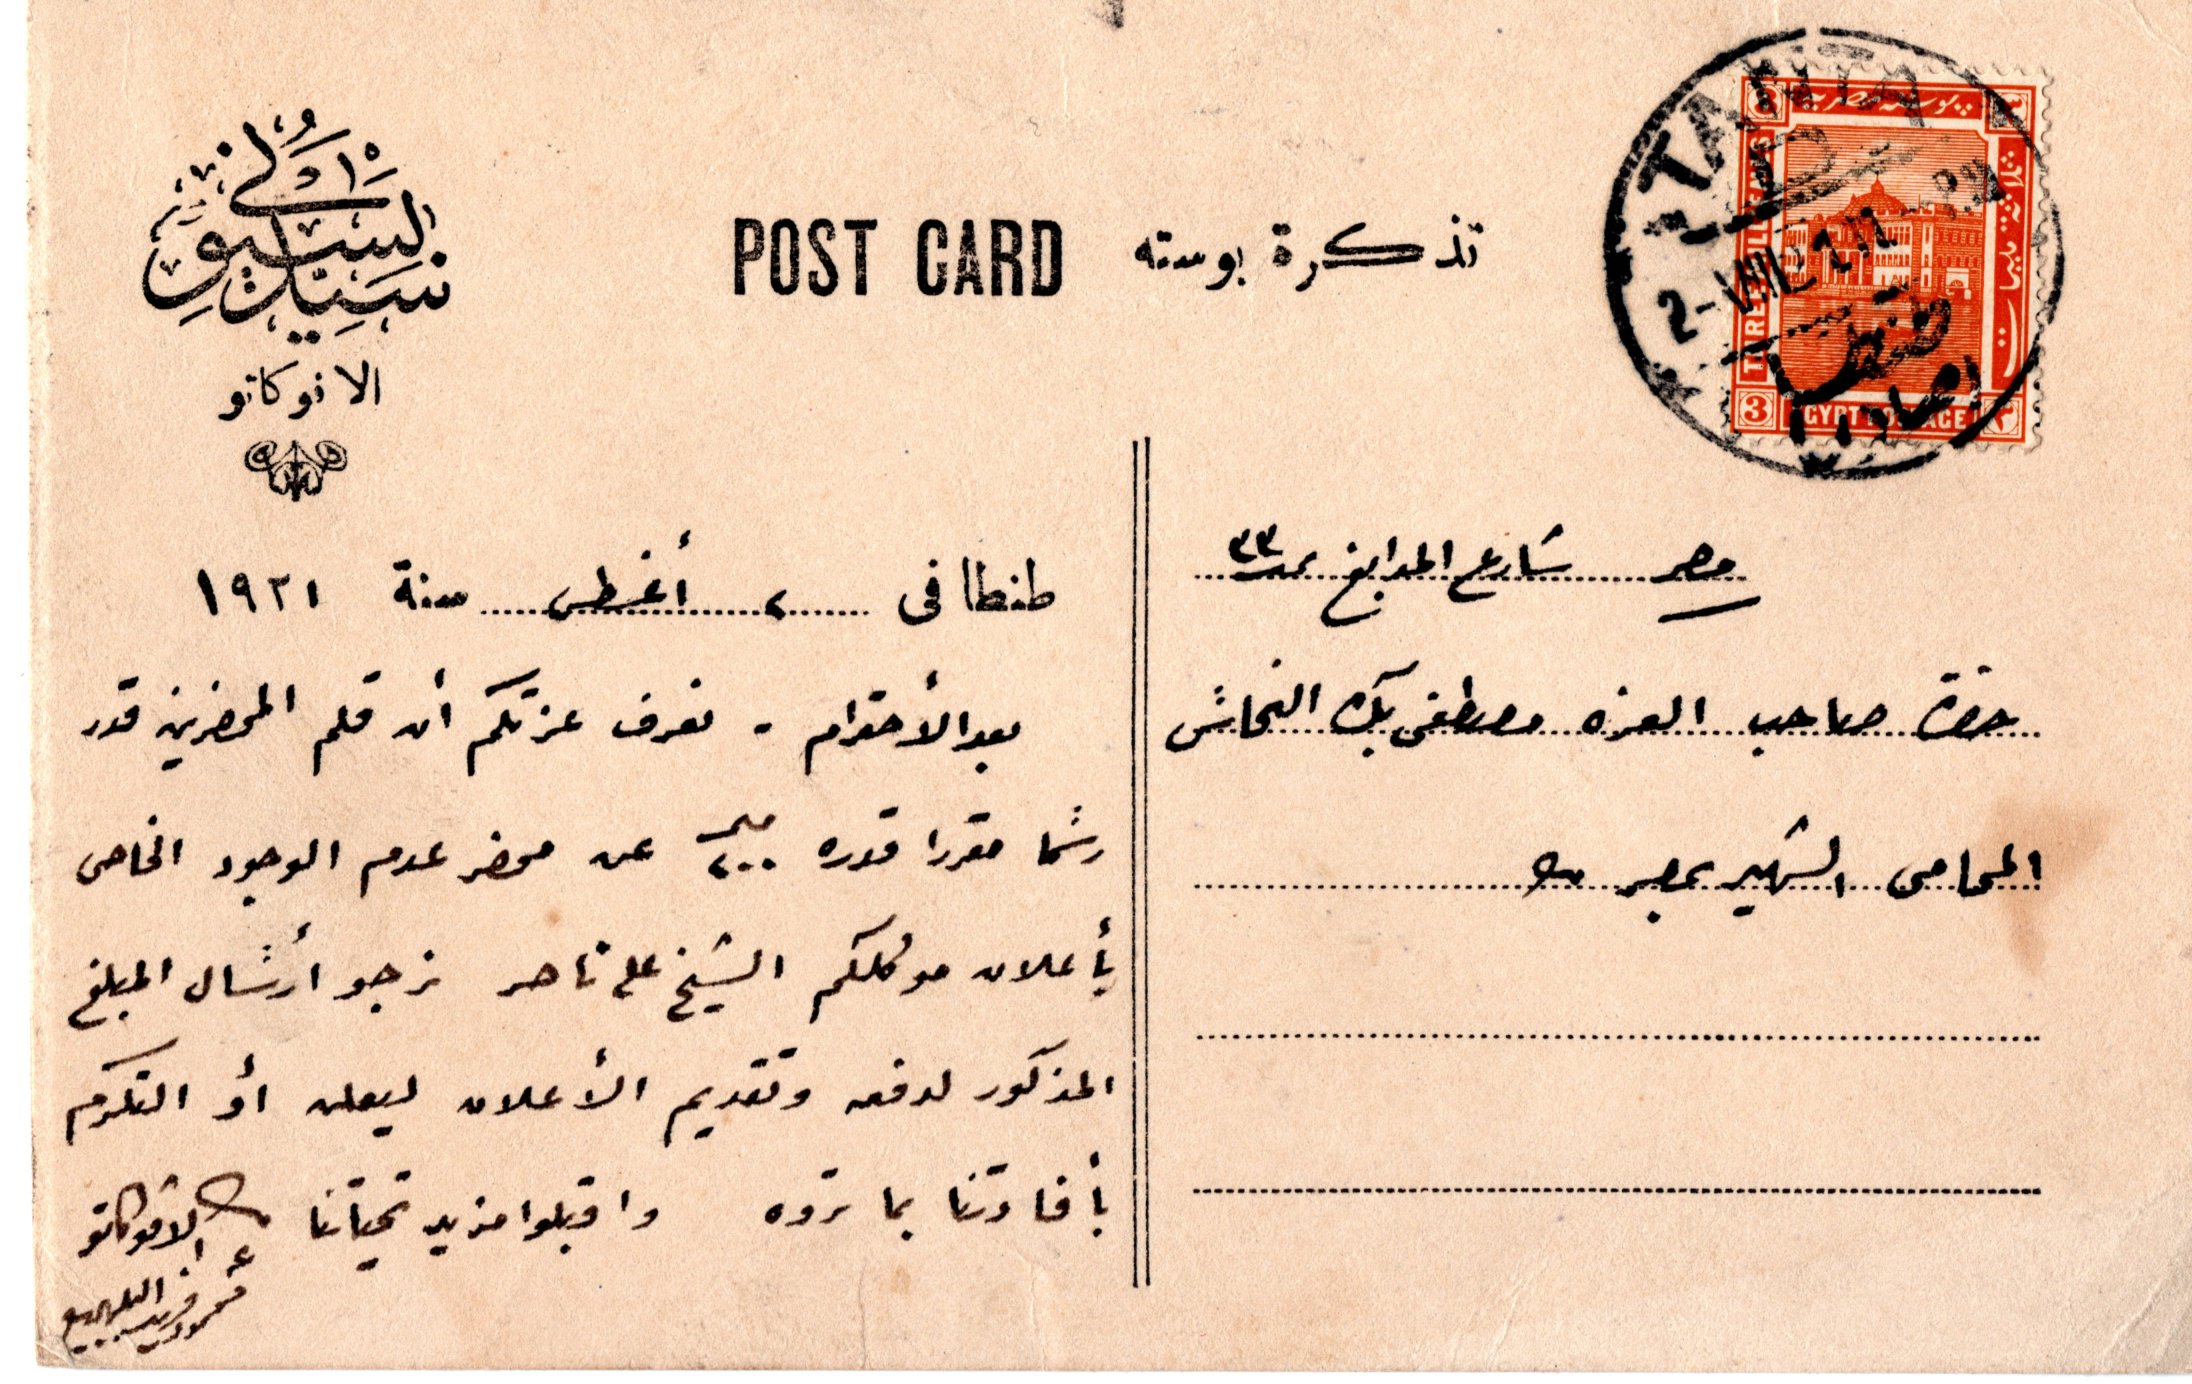 POST CARD تذكرة بوسته
الافوكاتو
TANTA
2-VIII 21
طنطا
بوسته مصريه
ثلاثة مليمات
THREE MILLIEMES
3 EGYPT POSTAGE ٣
مصر شارع المدابغ نمرة ٣٣
حضرة صاحب العزه مصطفى بك النحاس
المحامى الشهير بمصر
طنطا فى ٢ أغسطس سنة ١٩٢١
بعد الأحترام - نعرف عزتكم أن قلم المحضرين قدر
رسما مقررا قدره ٢٠٠ عن محضر عدم الوجود الخاص
بأعلان موكلكم الشيخ على ناصر نرجو أرسال المبلغ
المذكور لدفعه وتقديم الأعلان ليعلن أو التكرم
بأفادتنا بما تروه واقبلوا مزيد تحياتنا الافوكاتو